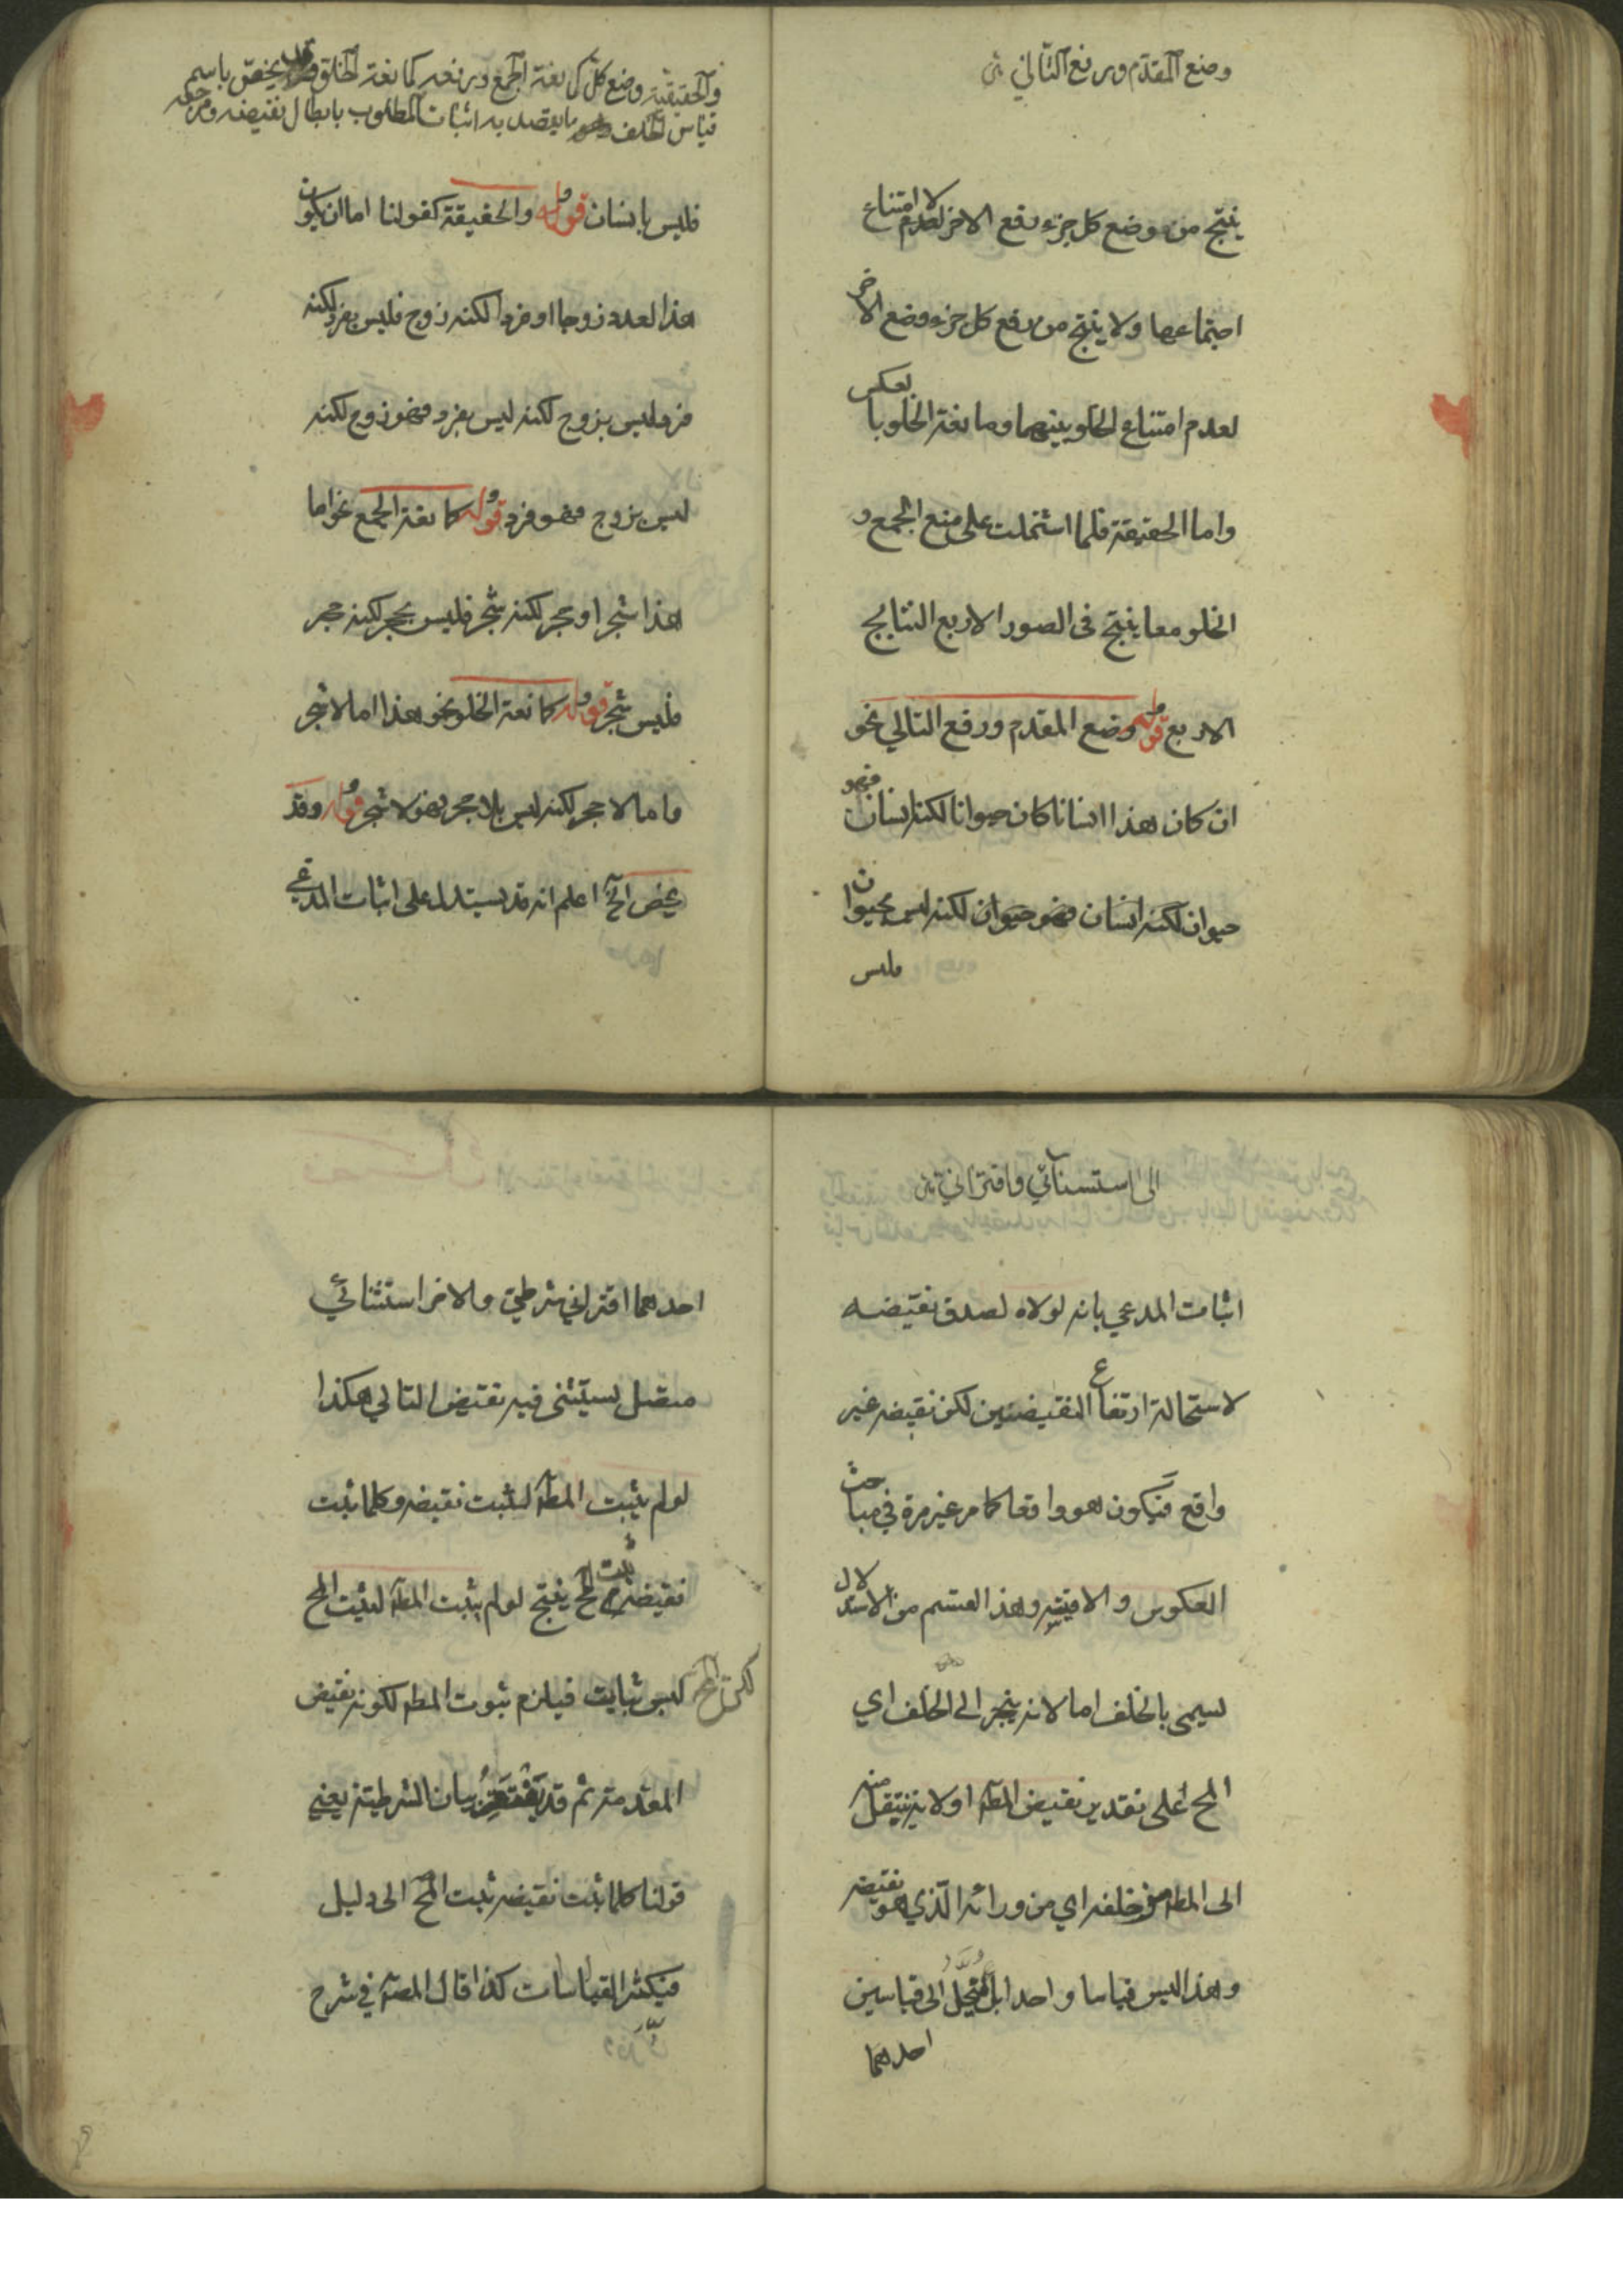 وضع المقدم ورفع التالي
ينتج من وضع كل جزء رفع الاخر لعدم لا امتناع
اجتماعهما ولا ينتج من رفع كل جزء وضع الاخر
لعدم امتناع الخلو بينهما ومانعة الخلو بالعكس
واما الحقيقة فلما اشتملت على منع الجمع و
الخلو معا ينتج في الصور الاربع النتايج
الاربع قوله وضع المقدم ورفع التالي نحو
ان كان هذا انسانا كان حيوانا لكنه انسان فهو
حيوان لكنه انسان فهو حيوان لكنه ليس بحيوان
فليس
والحقيقية وضع كل كمانعة الجمع ورفعه كمانعة الخلو وقد يخص باسم
قياس الخلف وهو ما يقصد به اثبات المطلوب بابطال نقيضه ومرجعه
فليس بانسان قوله والحقيقة كقولنا اما ان يكون
هذا العدد زوجا او فردا لكنه زوج فليس بفرد لكنه
فرد فليس بزوج لكنه ليس بفرد فهو زوج لكنه
ليس بزوج فهو فرد قوله كمانعة الجمع نحو اما
هذا شجر او حجر لكنه شجر فليس بحجر لكنه حجر
فليس شجر قوله كمانعة الخلو نحو هذا اما لا شجر
واما لا حجر لكنه ليس بلا حجر فهو لا شجر قوله وقد
يخص الخ اعلم انه قد يستدل على اثبات المدعي
الى استسنائي واقتراني
اثبات المدعي بانه لولاه لصدق نقيضه
لاستحالة ارتفاع النقيضين لكن نقيضه غير
واقع فيكون هو واقعا كما مر غير مرة في مباحث
العكوس والاقيسة وهذا القسم من الاستدلال
يسمى بالخلف اما لانه ينجر الى الخلف اي
المح على تقدير نقيض المط او لانه ينتقل منه
الى المط من خلفه اي من ورائه الذي هو نقيضه
وهذا ليس قياسا واحدا بل ينحل الى قياسين
احدهما
احدهما اقتراني شرطي والاخر استثنائي
متصل يستثنى فيه نقيض التالي هكذا
لو لم يثبت المط لثبت نقيضه وكلما ثبت
نقيضه ثبت المح ينتج لو لم يثبت المط لثبت المح
لكن المح ليس بثابت فيلزم ثبوت المط لكونه نقيض
المقدم ثم قد يفتقر بيان الشرطية يعني
قولنا كلما ثبت نقيضه ثبت المح الى دليل
فيكثر القياسات كذا قال المصنف في شرح